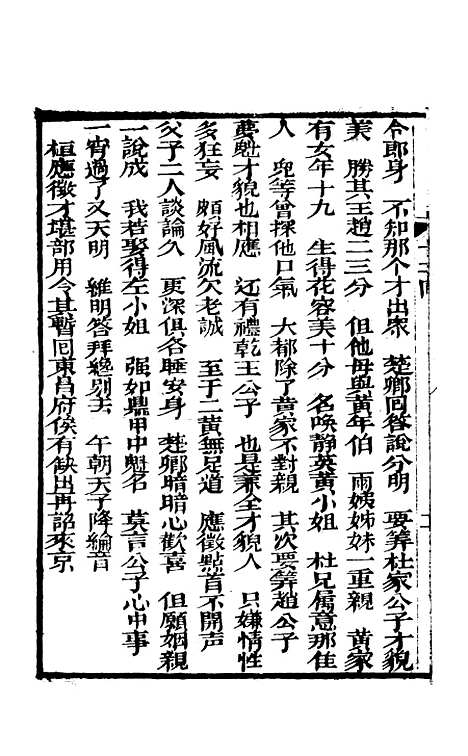 令郎身　不知那个才出衆　楚卿回答說分明　要算杜家公子才貌
美　勝其王趙二三分　但他母與黃年伯　兩姨姊妹一重親　黃家
有女年十九　生得花容美十分　名喚静英黃小姐　杜兄属意那佳
人　兜等曾探他口氣　大都除了黃家不對親　其次要算趙公子
夢魁才貌也相應　还有禮乾王公子　也是兼全才貌人　只嫌情性
多狂妄　頗好風流欠老誠　至于二黃無足道　應徵點首不開声
父子二人談論久　更深俱各睡安身　楚卿暗暗心歡喜　但願姻親
一說成　我若娶得左小姐　强如鼎甲中魁名　莫言公子心中事
一宵過了又天明　維明答拜總别去　午朝天子降綸音
桓應徵才堪部用今其暫囘東昌府俟有缺出再詔來京